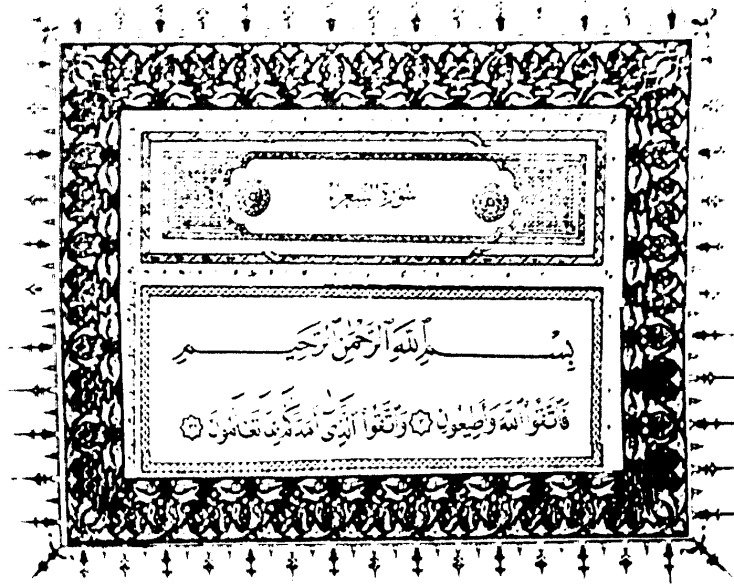 سورة الشعراء
بِسْمِ ٱللَّهِ ٱلرَّحْمَٰنِ ٱلرَّحِيمِ
فَاتَّقُوا ٱللَّهَ وَأَطِيعُونِ وَاتَّقُوا ٱلَّذِىٓ أَمَدَّكُم بِمَا تَعْلَمُونَ